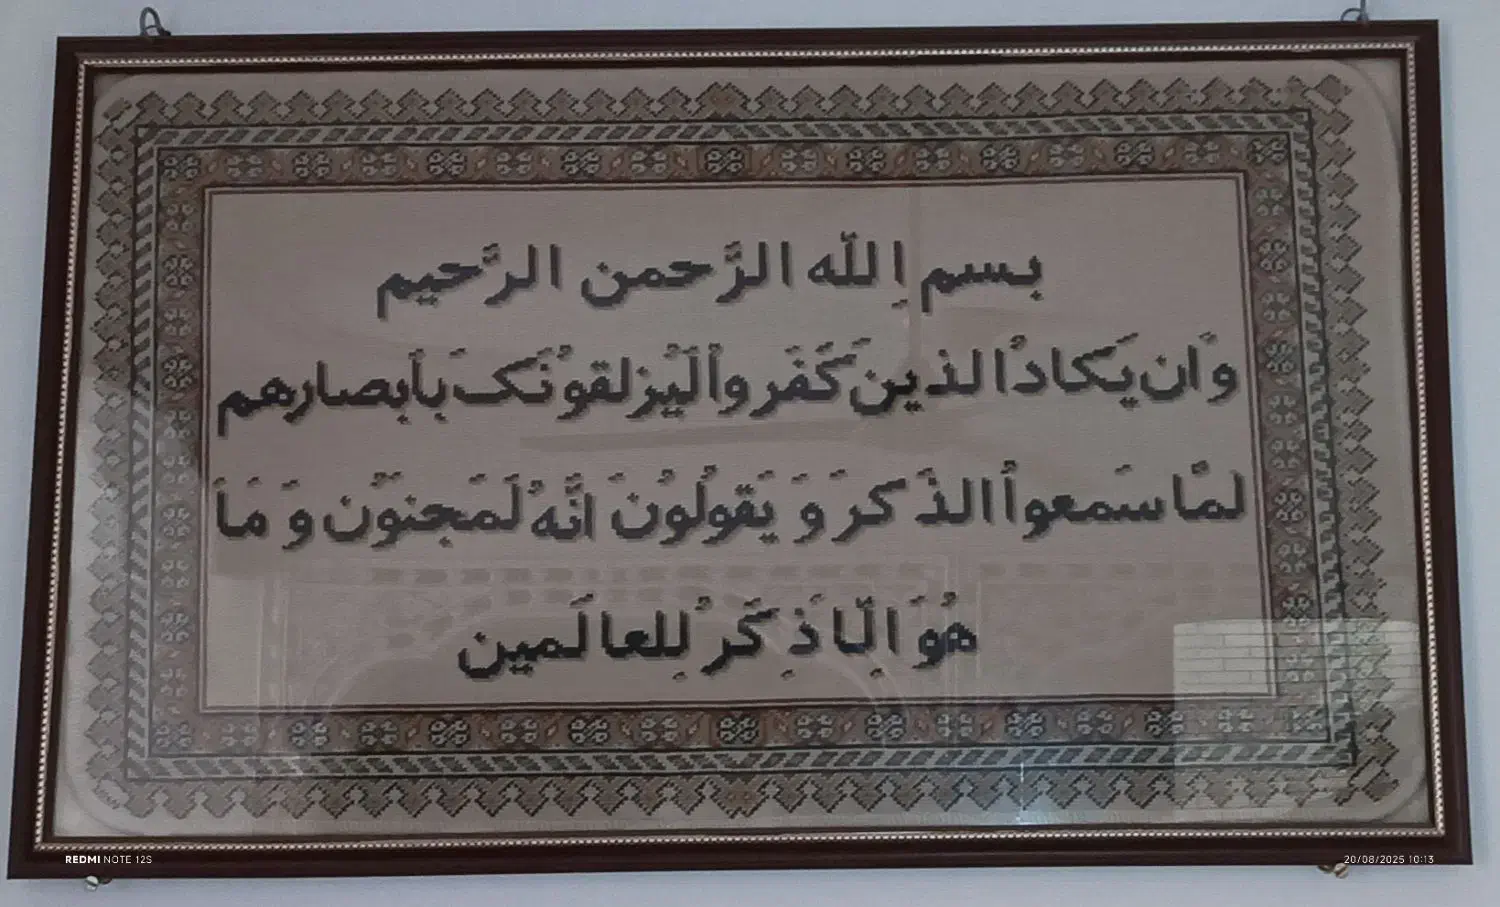 بسم اِللّه الرَّحمن الرَّحیم
وَان یَکادُ الذین کَفَرواْ لَیُزلقونَکَ بأبصارهم
لمّا سَمعواْ الذّکرَ وَ یَقولُونَ انَّهُ لَمَجنوَن وَ مَا
هُوَ اِلّا ذِکَر لِلعالَمین
REDMI NOTE 12S
20/08/2025 10:13